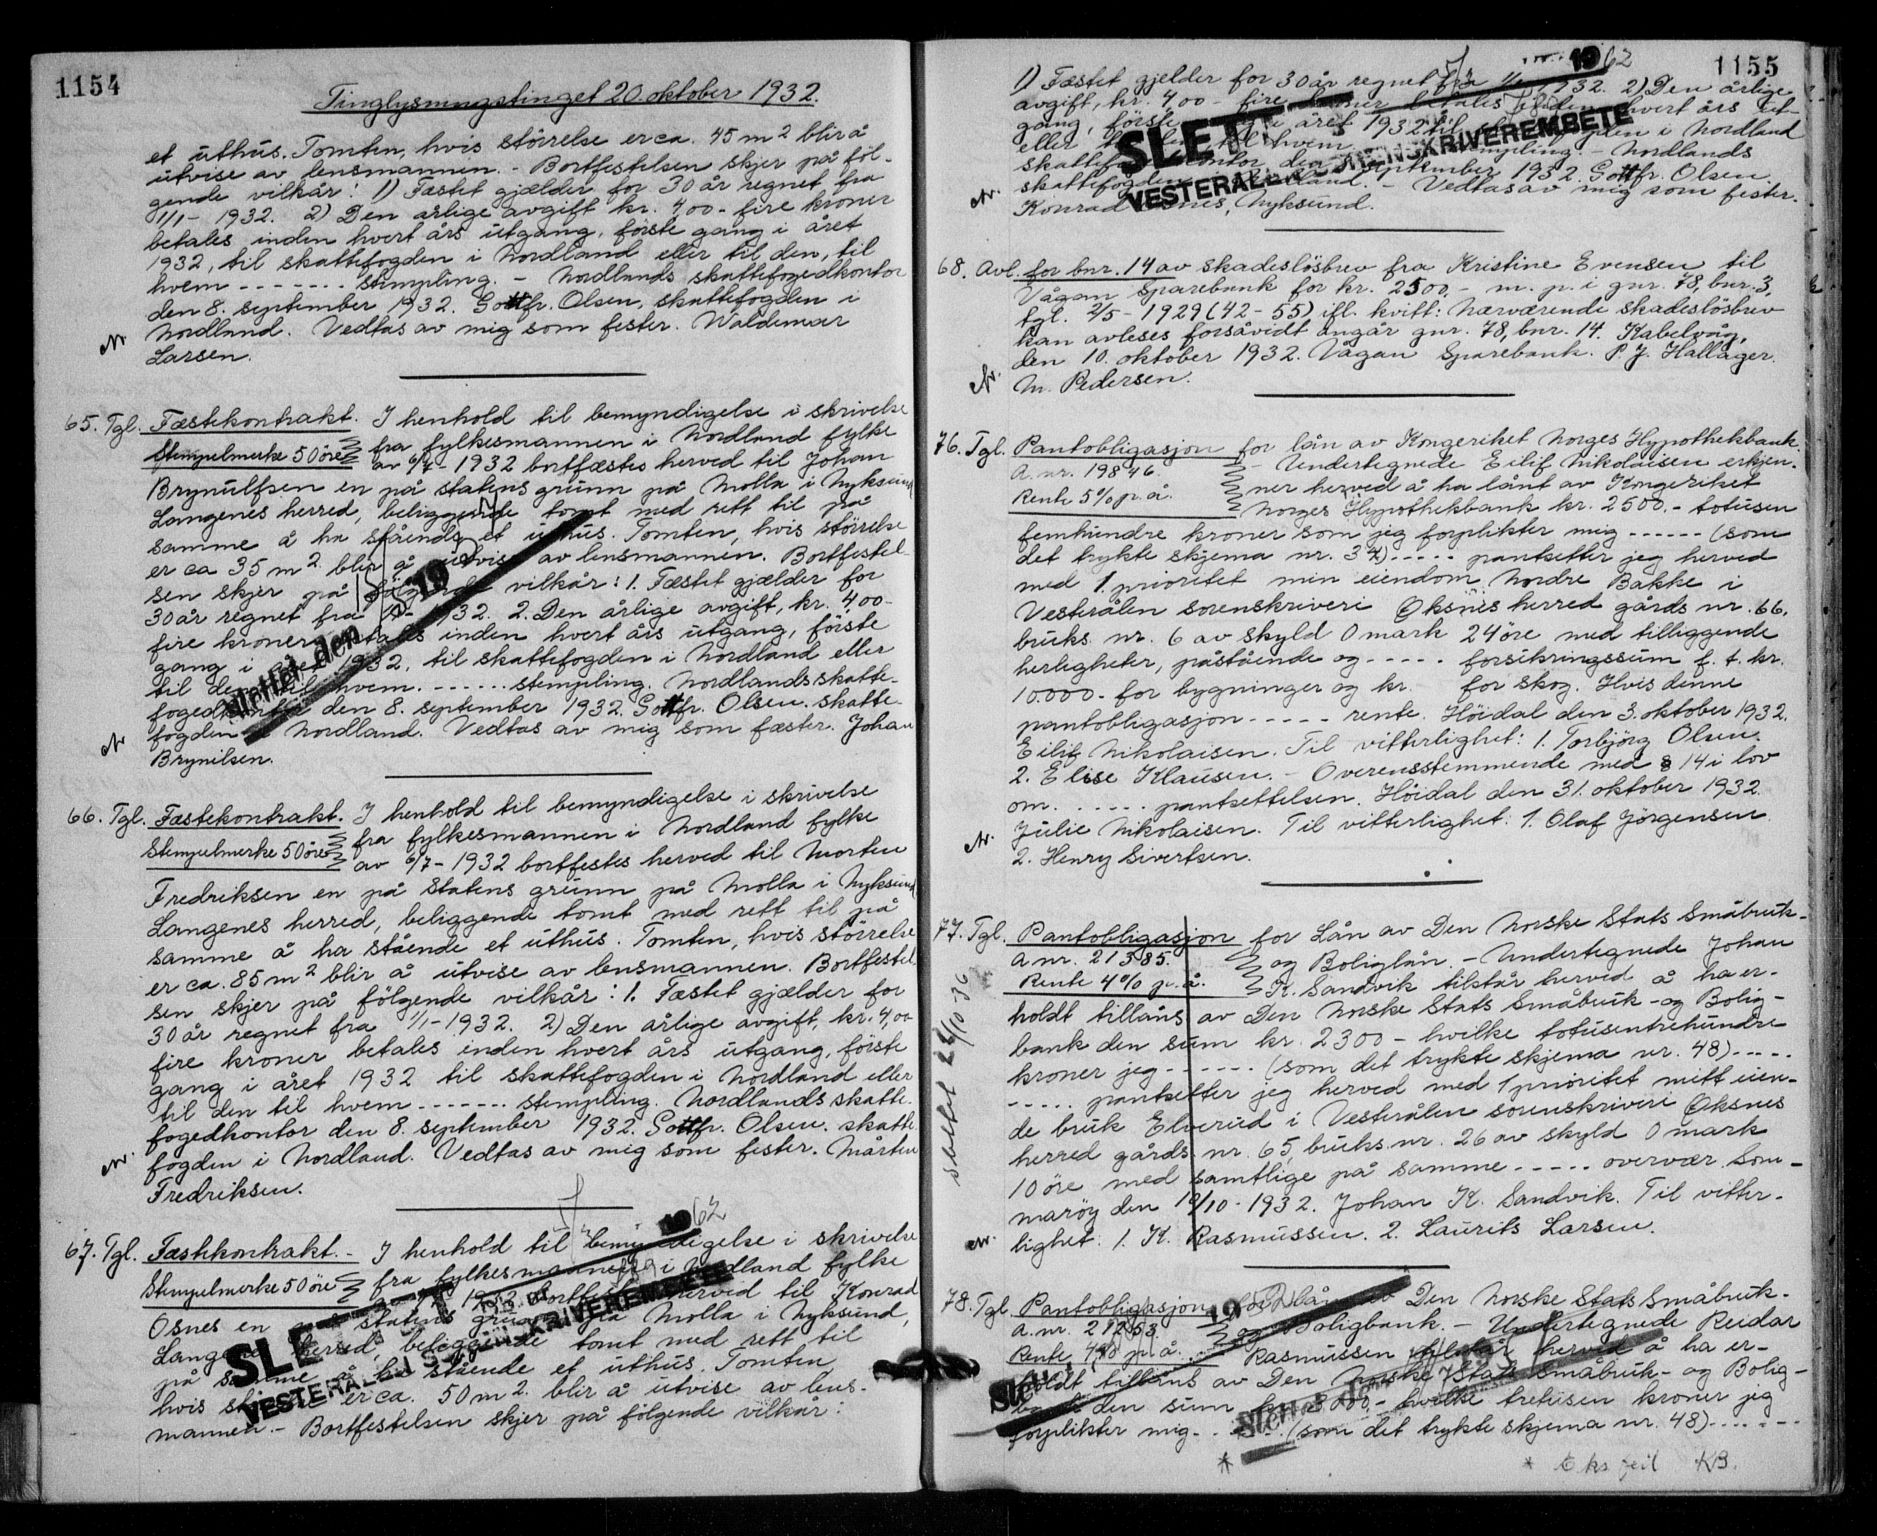 1154
Tinglysningstinget 20. oktober 1932.
et uthus. Tomten, hvis störrelse er ca. 45 m2 blir å
utvise av lensmannen. - Bortfestelsen skjer på föl-
gende vilkår: 1) Fæstet gjælder for 30 år regnet fra
1/1 - 1932. 2) Den årlige avgift kr. 4,00 - fire kroner
betales inden hvert års utgang, förste gang i året
1932, til skattefogden i Nordland eller til den, til
hvem ------- stempling. - Nordlands skattefogedkontor
den 8. september 1932. Gottfr. Olsen, skattefogden i
Nordland. Vedtas av mig som fester. Waldemar
Larsen.
65. Tgl. Fæstekontrakt. I henhold til bemyndigelse i skrivelse
Stempelmerke 50 öre fra fylkesmannen i Nordland fylke
av 6/7 - 1932 bortfæstes herved til Johan
Brynulfsen en på statens grunn på Molla i Nyksund
Langenes herred, beliggende tomt med rett til på
samme å ha stående et uthus. Tomten, hvis störrelse
er ca 35 m2. blir å utvise av lensmannen. Bortfestel-
sen skjer på fölgende vilkår: 1. Fæstet gjælder for
30 år regnet fra 1/1 - 1932. 2. Den årlige avgift, kr. 4,00-
fire kroner betales inden hvert års utgang, förste
gang i året 1932, til skattefogden i Nordland eller
til den til hvem. ------ stempling. Nordlands skatte-
fogedkontor den 8. september 1932. Gottfr. Olsen. skatte-
fogden i Nordland. Vedtas av mig som fæster. Johan
Brynilsen.
Slettet den 19
66. Tgl. Fæstekontrakt. I henhold til bemyndigelse i skrivelse
Stempelmerke 50 öre fra fylkesmannen i Nordland fylke
av 6/7 - 1932 bortfestes herved til Morten
Fredriksen en på statens grunn på Molla i Nyksund
Langenes herred, beliggende tomt med rett til på
samme å ha stående et uthus. Tomten, hvis störrelse
er ca. 85 m2 blir å utvise av lensmannen. Bortfestel
sen skjer på fölgende vilkår: 1. Fæstet gjælder for
30 år regnet fra 1/1 - 1932. 2) Den årlige avgift, kr. 4,00
fire kroner betales inden hvert års utgang, förste
gang i året 1932 til skattefogden i Nordland eller
til den til hvem ------- stempling. Nordlands skatte-
fogedkontor den 8. september 1932. Gottfr. Olsen. skatte
fogden i Nordland. Vedtas av mig som fester. Mårten
Fredriksen.
1962
67. Tgl. Fæstekontrakt. - I henhold til bemyndigelse i skrivelse
Stempelmerke 50 öre fra fylkesmannen i Nordland fylke
av 6/7 1932 bortfestes herved til Konrad
Osnes en på statens grunn på Molla i Nyksund,
Langenes herred, beliggende tomt med rett til
på samme å ha stående et uthus. Tomten,
hvis störrelse er ca. 50 m2. blir å utvise av lens-
mannen. - Bortfestelsen skjer på fölgende vilkår:
SLETTET
VESTERÅLEN SORENSKRIVEREMBETE
1155
1962
1) Fæstet gjelder for 30 år regnet fra 1/1 1932. 2) Den årlige
avgift, kr. 4,00 - fire kroner betales inden hvert års ut-
gang, förste gang i året 1932 til skattefogden i Nordland
eller til den til hvem stempling. - Nordlands
skattefogedkontor den 8. september 1932. Gottfr. Olsen
skattefogden i Nordland. - Vedtas av mig som fester.
Konrad Osnes, Nyksund.
SLETTET
VESTERÅLEN SORENSKRIVEREMBETE
68. Avl. for bnr. 14 av skadeslösbrev fra Kristine Evensen til
Vågan Sparebank for kr. 2500,- m. p. i gnr. 78, bnr. 3,
tgl. 2/5 - 1929 (42 - 55) ifl. kvitt: Nærværende skadeslösbrev
kan avleses forsåvidt angår gnr. 78, bnr. 14. Kabelvåg,
den 10. oktober 1932. Vågan Sparebank. P. J. Hallager.
M. Pedersen.
76. Tgl. Pantobligasjon for lån av Kongeriket Norges Hypothekbank.
A. nr. 19846. - Undertegnede Eilif Nikolaisen erkjen-
Rente 5% p. å. ner herved å ha lånt av Kongeriket
Norges Hypothekbank kr. 2500,- totusen
femhundre kroner som jeg forplikter mig ------ (som
det trykte skjema nr. 37) ----- pantsetter jeg herved
med 1. prioritet min eiendom Nordre Bakke i
Vesterålen sorenskriveri Öksnes herred gårds nr. 66.
bruks. nr. 6 av skyld 0 mark 24 öre med tilliggende
herligheter, påstående og ----- forsikringssum f. t. kr.
10000 - for bygninger og kr. for skog. Hvis denne
pantobligasjon ----- rente. Höidal den 3. oktober 1932.
Eilif Nikolaisen. Til vitterlighet: 1. Torbjörg Olsen.
2. Elise Klausen. - Overensstemmende med § 14 i lov
om. ----- pantsettelsen. Höidal den 31. oktober 1932.
Julie Nikolaisen. Til vitterlighet: 1. Olaf Jörgensen
2. Henry Sivertsen.
77. Tgl. Pantobligasjon for Lån av Den Norske Stats Småbruk-
A. nr. 21385. og Boliglån. - Undertegnede Johan
Rente 4% p. å. K. Sandvik tilstår herved å ha er-
holdt tillåns av Den Norske Stats Småbruk - og Bolig-
bank den sum kr. 2300 - hvilke totusentrehundre
kroner jeg ------ (som det trykte skjema nr. 48) ----
----- pantsetter jeg herved med 1 prioritet mitt eien-
de bruk Elverud i Vesterålen sorenskriveri Öksnes
herred gårds nr. 65 bruks. nr. 26 av skyld 0 mark
10 öre med samtlige på samme ----- overvær. Som-
maröy den 10/10 - 1932. Johan K. Sandvik. Til vitter-
lighet: 1. K. Rasmussen. 2. Laurits Larsen.
78. Tgl. Pantobligasjon for lån av Den Norske Stats Småbruk-
A. nr. 21263. og Boligbank. - Undertegnede Reidar
Rente 4% p. å. Rasmussen tilstår herved å ha er-
holdt tillåns av Den Norske Stats Småbruk- og Bolig-
bank den sum kr. 3000,- hvilke tretusen kroner jeg
forplikter mig- ---- (som det trykte skjema nr. 48) ------
Slettet den
* Eks feil KB.